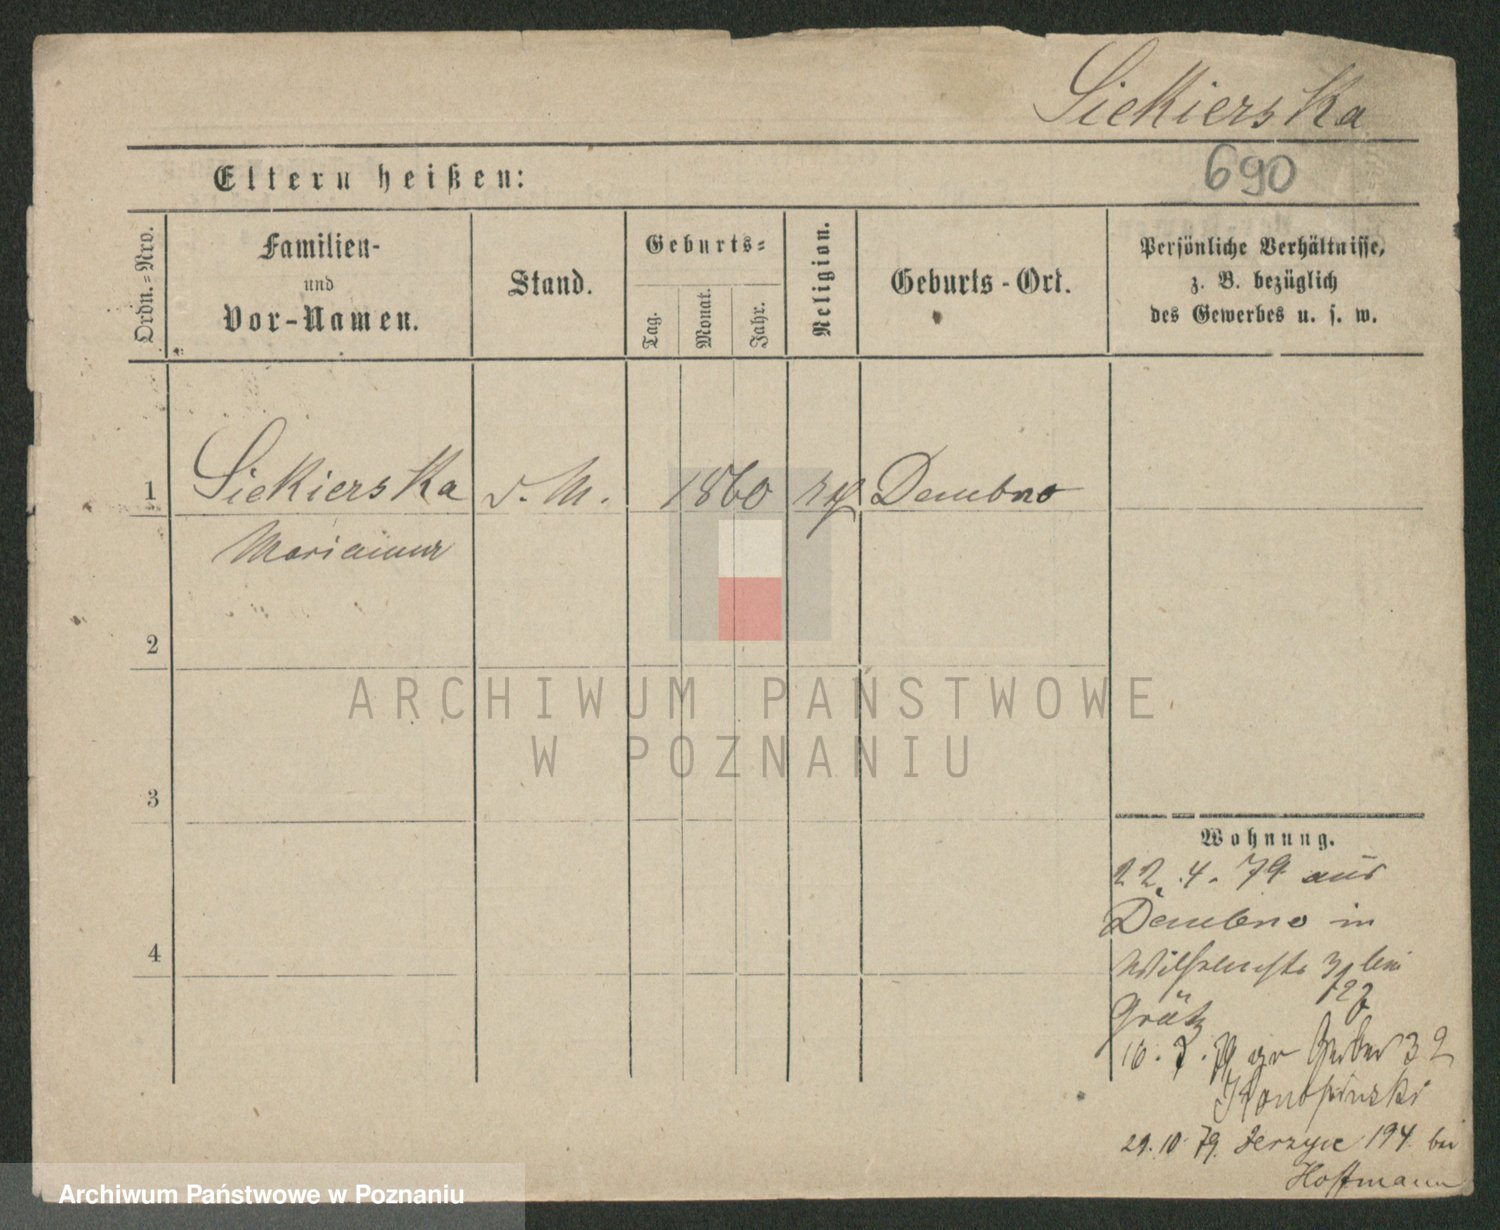 Siekierska
690
Eltern heißen:
Ordn.-Nro.
Familien-
und
Vor-Namen.
Stand.
Geburts-
Tag.
Monat.
Jahr.
Religion.
Geburts-Ort.
Persönliche Verhältnisse,
z. B. bezüglich
des Gewerbes u. s. w.
1 Siekierska d. M. 1860 Dembno
Marianna
2
3
4
ARCHIWUM PAŃSTWOWE
W POZNANIU
Wohnung.
22.4.79 aus
Dembno in
bei
Grätz
10.7.79 gr Gerber 32
Konopinski
29.10.79. Jerzyce 194 bei
Hoffmann
Archiwum Państwowe w Poznaniu